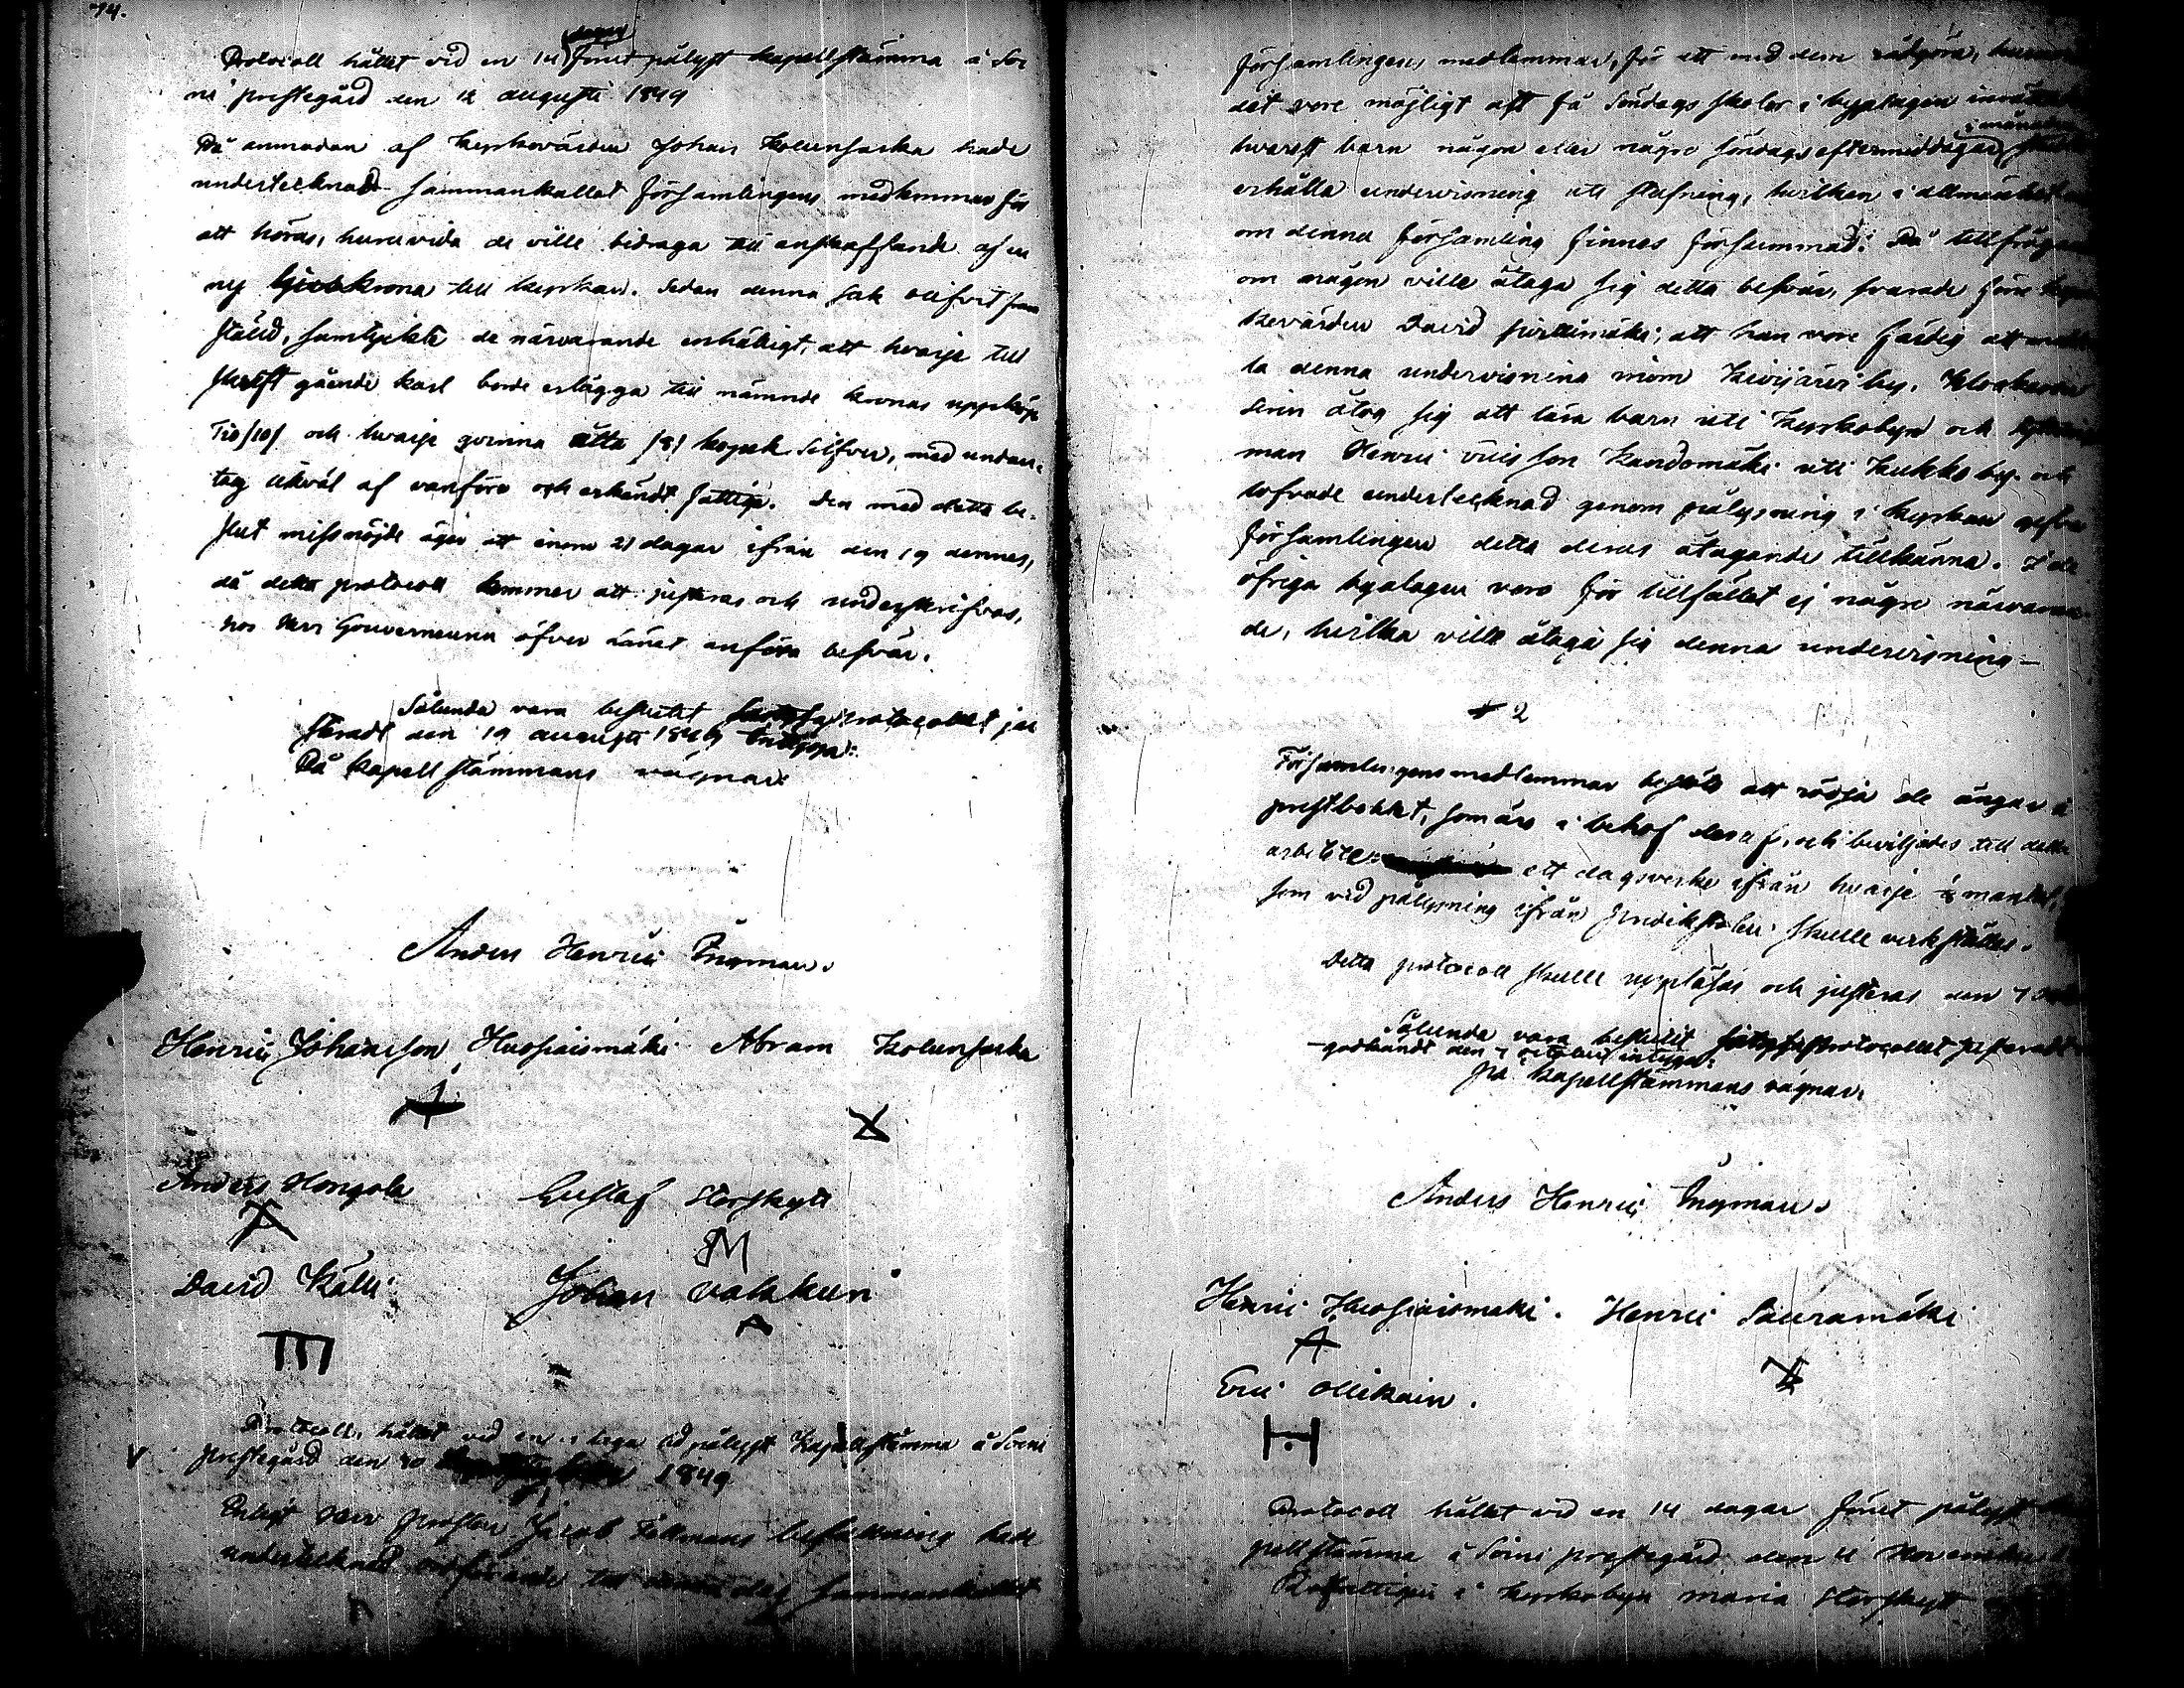 74.
Protocoll hållet vid en 14 dagar förut pålyst kapellstämma å Soi
ni prestegård den 12 augusti 1849
På anmodan af Kyrkovärden Johan Kolunsarka hade
undertecknad sammankallat församlingens medlemmar för
att höras, huruvida de ville bidraga till anskaffande af en
ny ljuskrona till kyrkan. Sedan denna sak blifvit fram
stäld, samtyckte de närvarande enhälligt, att hvarje till
skrift gående karl borde erlägga till nämnde kronas uppköp
Tio /10/ och hvarje qvinna åtta /8/ kopek Silfver, med undan¬
tag likväl af vanföre och erkändt fattige. Den med detta be¬
slut missnöjde äger att inom 21 dagar ifrån den 19 dennes,
då detta protocoll kommer att justeras och underskrifvas,
hos Herr Gouverneuren öfver Länet anföra besvär.
Sålunda vara beslutet protocollet jus
teradt den 19 augusti 1849 intyga:
På kapellstämmans vägnar:
Anders Henric Ingman.
Henric Johansson Huosiaismäki Abram Kolunsarka
Anders Hongola Gustaf Storskytt
M
David Källi Johan Valakuri
Protocoll, hållet vid en laga tid pålyst Kapellstämma å Soini
prestegård den 30 1849
Enligt Herr Prosten Jacob Fellmans befallning hade
undertecknad ordförande till denna dag sammankallat
församlingens medlemmar, för att med dem rådgöra, huru
det vore möjligt att få Söndags skolor i byalagen
i månaden
hvarest barn någon eller några söndagseftermiddagar
erhålla undervisning uti stafning, hvilken i allmänhet
om denna församling finnes försummad. På
om någon ville åtaga sig detta besvär, svarade förre
kevärden David att han vore färdig att
la denna undervisning inom Kivijärvi by. Klockaren
Sirin åtog sig att lära barn uti Kyrkobyn och
man Henric Ericsson Kandomäki uti Kukko by. och
lofvade undertecknad genom pålysning i kyrkan
församlingen detta deras åtagande tillkänna. I de
öfriga byalagen voro för tillfället ej några närvaran
de, hvilka ville åtaga sig denna undervisning —
2
Församlingens medlemmar beslöto att rödja de ängar å
prestbohlet, som äro i behof deraf, och beviljades till detta
arbete ett dagsverke ifrån hvarje mantal,
som vid pålysning ifrån predikstolen skulle verkställas.
Detta protocoll skulle uppläsas och justeras den 7
Sålunda vara beslutit protocollet justeradt
godkändt den 7 october intyga:
på kapellstämmans vägnar.
Anders Henric Ingman.
Henric Huosiaismäki. Henric Sauramäki
Eric Ollikain.
Protocoll hållet vid en 14 dagar förut pålyst
pellstämma å Soini prestegård den 4 November
Rotfattigen i Kyrkobyn Maria Storskytt